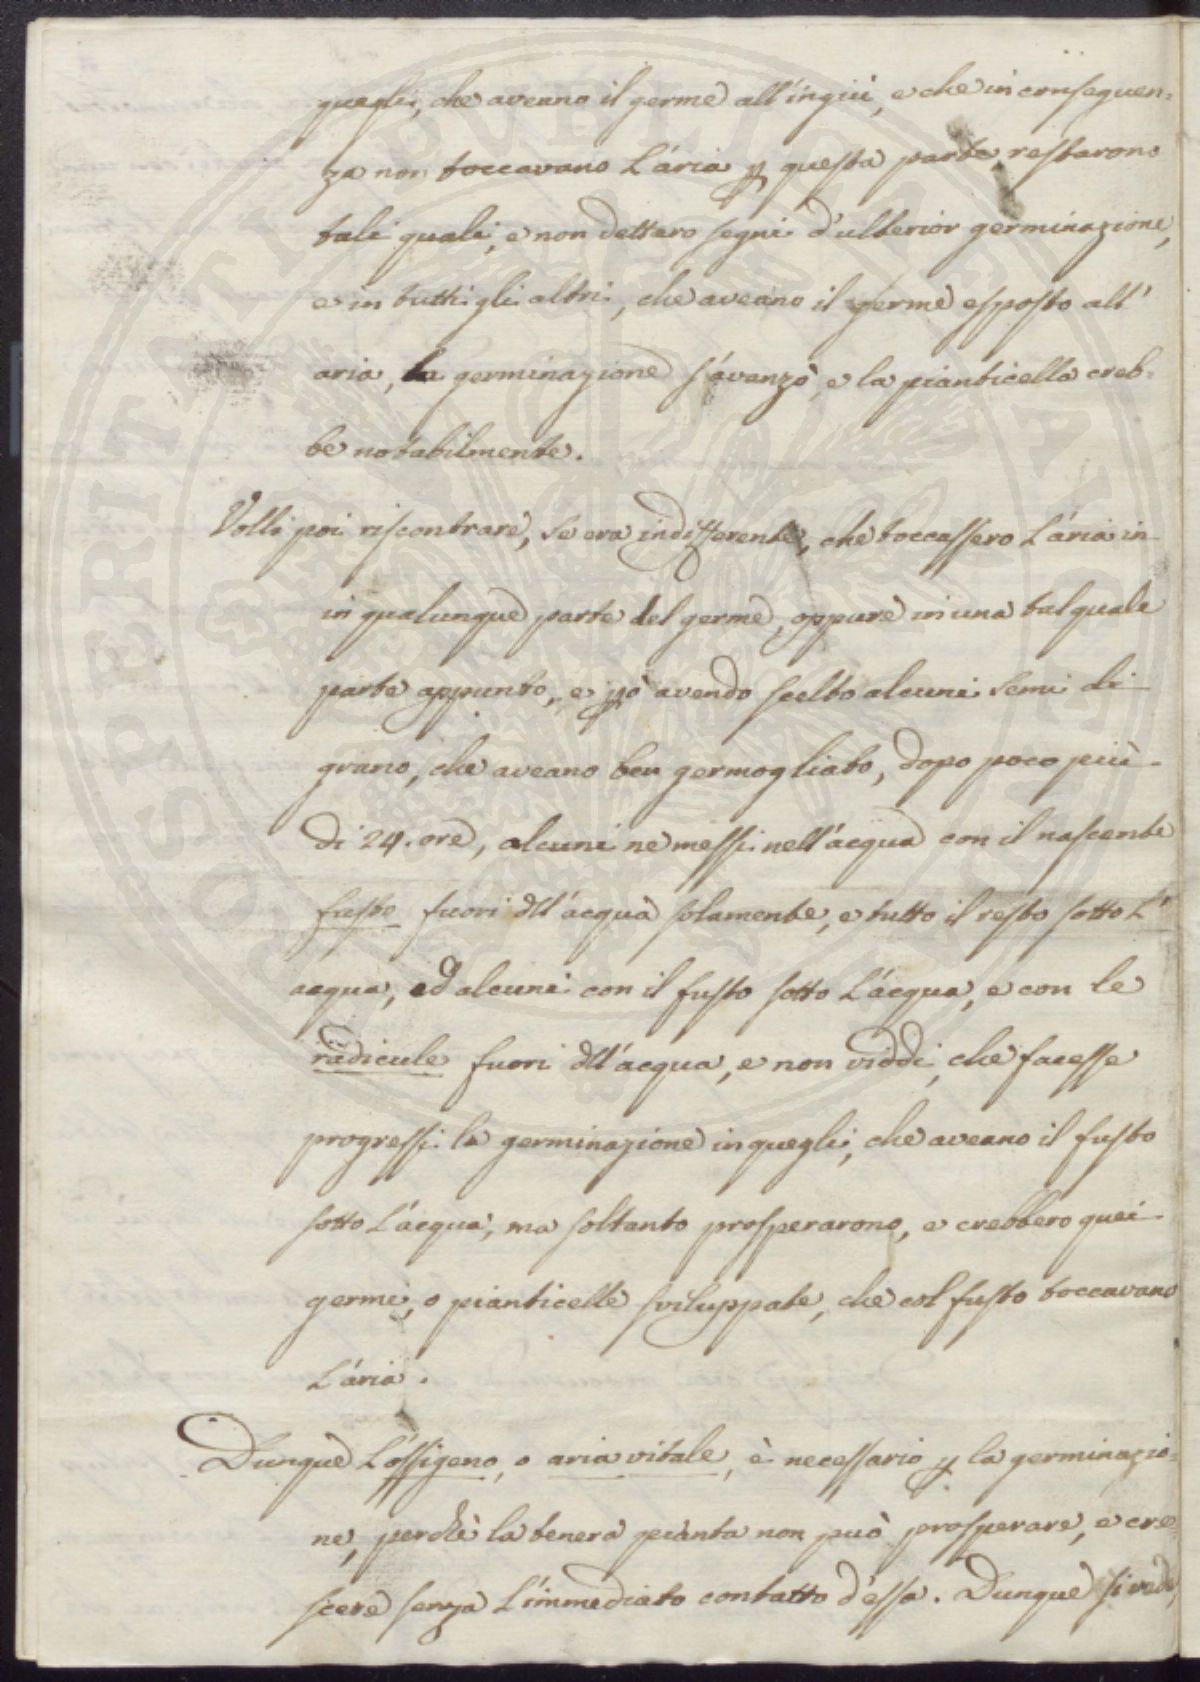 quegli, che aveano il germe all'ingiù, e che in conseguen-
za non toccavano L'aria p questa parte, restarono
tali quali, e non dettero segni d'ulterior germinazione,
e in tutti gli altri, che aveano il germe esposto all'
aria, la germinazione s'avanzò, e la pianticella creb-
be notabilmente.
Volli poi riscontrare, se era indifferente, che toccassero L'aria in
in qualunque parte del germe, oppure in una tal quale
parte appunto, e pò avendo scelto alcuni semi di
grano, che aveano ben germogliato, dopo poco più
di 24. ore, alcuni ne messi nell'acqua con il nascente
fusto fuori dll'acqua solamente, e tutto il resto sotto L'
acqua, ed alcuni con il fusto sotto L'acqua, e con le
radicule fuori dll'acqua, e non viddi, che facesse
progressi la germinazione in quegli, che aveano il fusto
sotto L'acqua, ma soltanto prosperarono, e crebbero quei
germi, o pianticelle sviluppate, che col fusto toccavano
L'aria.
Dunque L'ossigeno, o aria vitale, è necessario p la germinazio-
ne, perchè la tenera pianta non può prosperare, e cre
scere senza L'immediato contatto d'essa. Dunque si vede,
COSPERITATI PVBLICAE AVGENDAE